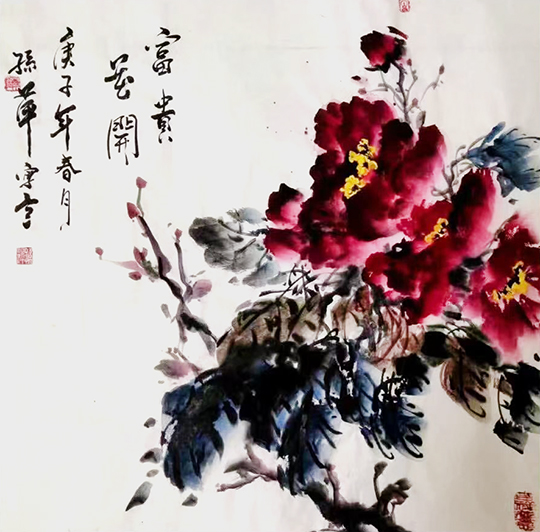 富貴
花開
庚子年春月
孫萍